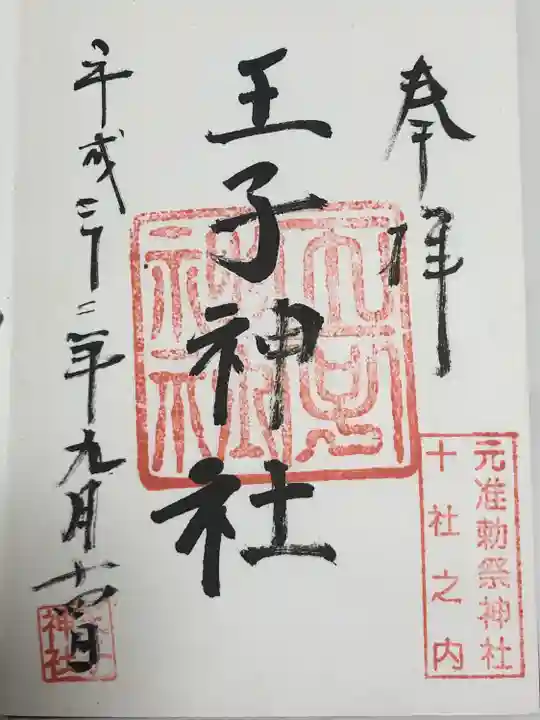 奉拝
元准勅祭神社
十社之内
王子神社
王子神社
平成三十二年九月十四日
神社